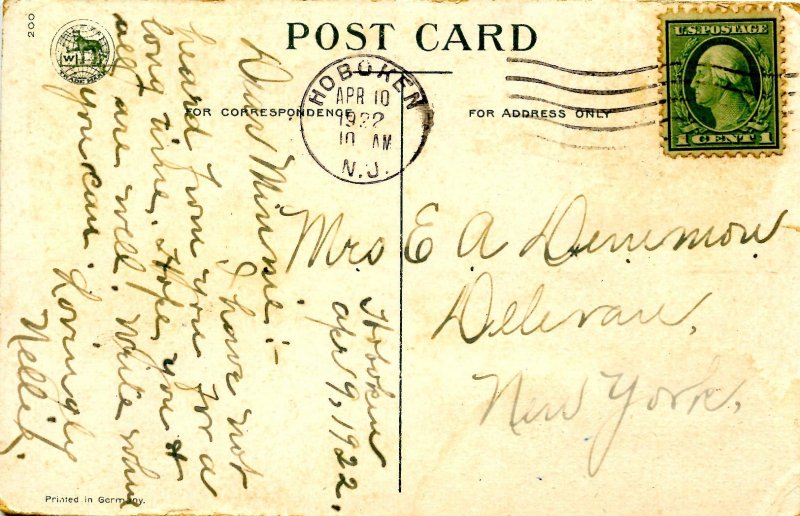 200
TRADE MARK
W
POST CARD
HOBOKEN
APR 10
1922
10 AM
N.J.
U.S. POSTAGE
1 CENT 1
FOR CORRESPONDENCE
FOR ADDRESS ONLY
Hoboken
Apr 9, 1922.
Dear Minnie:-
I have not
heard from you for a
long time. Hope you &
all are well. Write when
you can. Lovingly
Nellie.
Mrs E A
Delevan,
New York.
Printed in Germany.